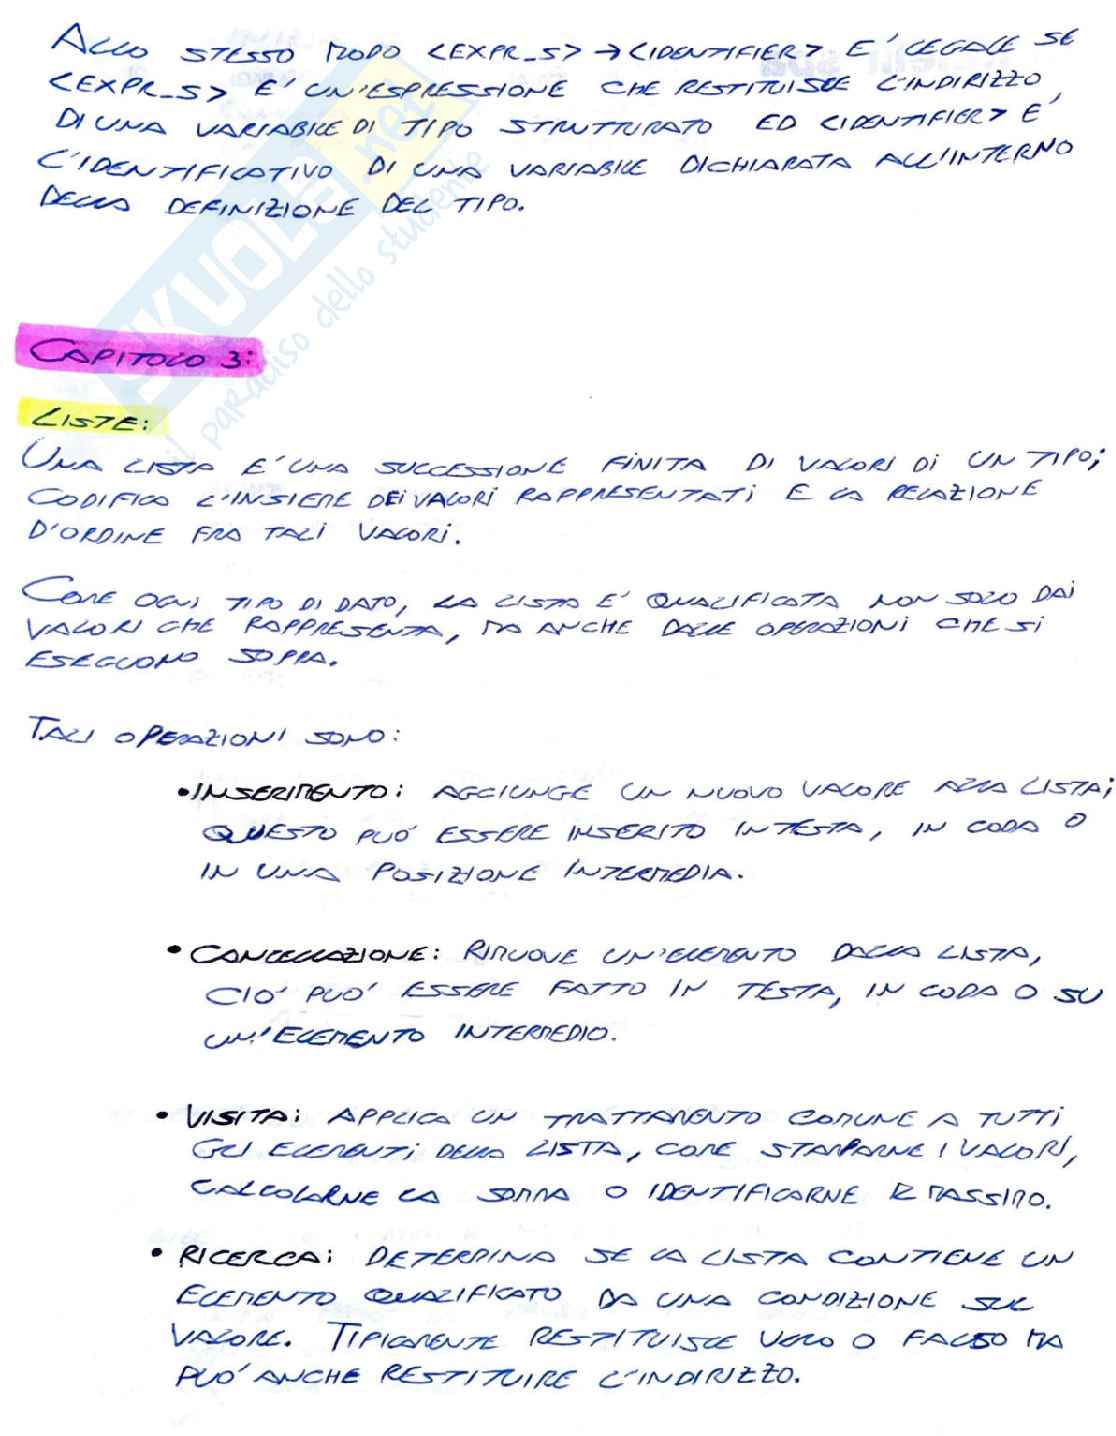 ALLO STESSO MODO <EXPR_S> → <IDENTIFIER> E' LEGALE SE
<EXPR_S> E' UN'ESPRESSIONE CHE RESTITUISCE L'INDIRIZZO
DI UNA VARIABILE DI TIPO STRUTTURATO ED <IDENTIFIER> E'
L'IDENTIFICATIVO DI UNA VARIABILE DICHIARATA ALL'INTERNO
DELLA DEFINIZIONE DEL TIPO.
SKUOLA.net
il paradiso dello studente
CAPITOLO 3:
LISTE:
UNA LISTA E' UNA SUCCESSIONE FINITA DI VALORI DI UN TIPO;
CODIFICA L'INSIEME DEI VALORI RAPPRESENTATI E LA RELAZIONE
D'ORDINE FRA TALI VALORI.
COME OGNI TIPO DI DATO, LA LISTA E' QUALIFICATA NON SOLO DAI
VALORI CHE RAPPRESENTA, MA ANCHE DALLE OPERAZIONI CHE SI
ESEGUONO SOPRA.
TALI OPERAZIONI SONO:
• INSERIMENTO: AGGIUNGE UN NUOVO VALORE ALLA LISTA;
QUESTO PUO' ESSERE INSERITO IN TESTA, IN CODA O
IN UNA POSIZIONE INTERMEDIA.
• CANCELLAZIONE: RIMUOVE UN'ELEMENTO DALLA LISTA,
CIO' PUO' ESSERE FATTO IN TESTA, IN CODA O SU
UN'ELEMENTO INTERMEDIO.
• VISITA: APPLICA UN TRATTAMENTO COMUNE A TUTTI
GLI ELEMENTI DELLA LISTA, COME STAMPARNE I VALORI,
CALCOLARNE LA SOMMA O IDENTIFICARNE IL MASSIMO.
• RICERCA: DETERMINA SE LA LISTA CONTIENE UN
ELEMENTO QUALIFICATO DA UNA CONDIZIONE SUL
VALORE. TIPICAMENTE RESTITUISCE VERO O FALSO MA
PUO' ANCHE RESTITUIRE L'INDIRIZZO.